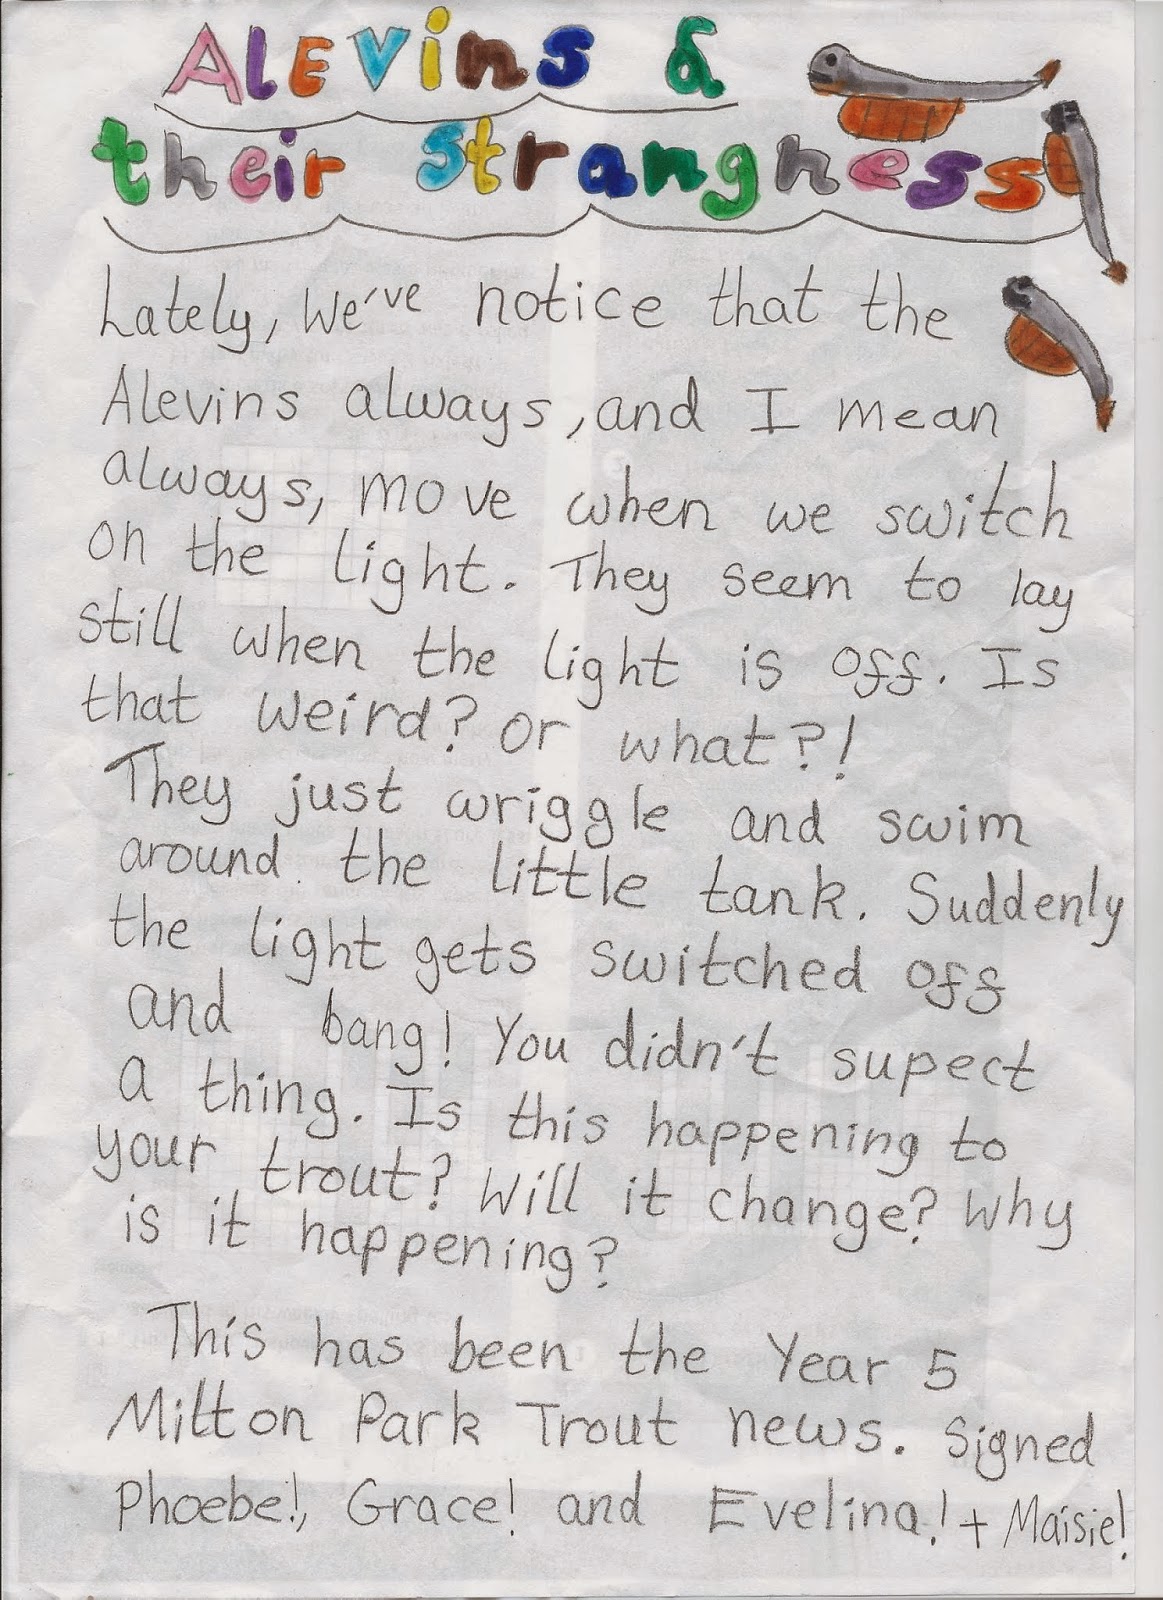 Alevins &
their strangness
Lately, We've notice that the
Alevins always, and I mean
always, move when we switch
on the light. They seem to lay
still when the light is off. Is
that weird? or what?!
They just wriggle and swim
around the little tank. Suddenly
the light gets switched off
and bang! You didn't supect
a thing. Is this happening to
your trout? Will it change? Why
is it happening?
This has been the Year 5
Milton Park Trout news. Signed
Phoebe!, Grace! and Evelina! + Maisie!